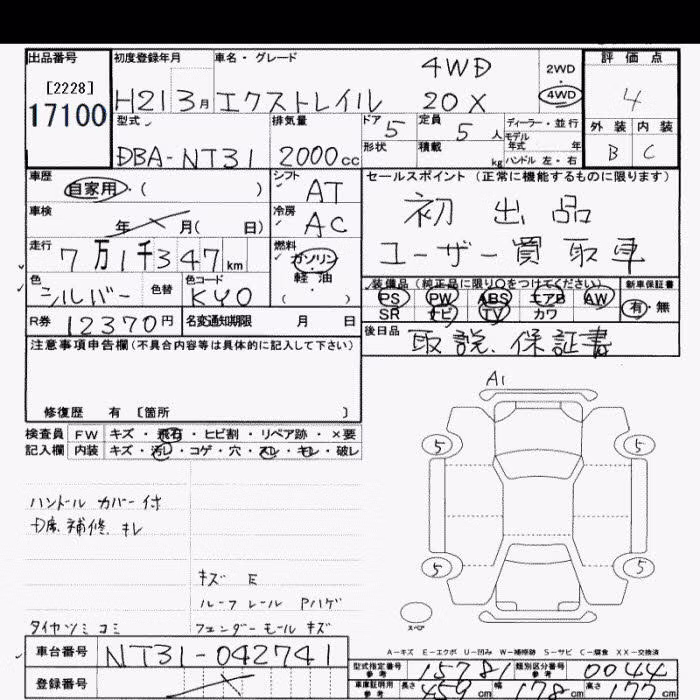 出品番号 初度登録年月 車名・グレード 4WD 2WD 評価点
[2228]
17100 H21 3月 エクストレイル 20X 4WD 4
型式 排気量 ドア 5 定員 5人 ディーラー・並行 外装 内装
モデル
DBA-NT31 2000cc 形状 積載 kg 年式 年 B C
ハンドル 左・右
車歴 シフト セールスポイント (正常に機能するものに限ります)
自家用・( ) AT
車検 冷房 初出品
年 月( 日) AC
走行 燃料 ユーザー買取車
7万1千347km ガソリン
色 色替 色コード 軽油 装備品(純正品に限り○をつけてください) 新車保証書
シルバー KYO ( ) PS PW ABS エアB AW 有・無
SR ナビ TV カワ
R券 12370円 名変通知期限 月 日 後日品 取説、保証書
注意事項申告欄(不具合内容等は具体的に記入して下さい)
A1
修復歴 有 〔箇所 〕
検査員 FW キズ・飛石・ヒビ割・リペア跡・×要
記入欄 内装 キズ・汚れ・コゲ・穴・スレ・キレ・破レ
5 5
ハンドルカバー付
補修、キレ
5 5
キズ E
ルーフレール Pハゲ
タイヤツミコミ フェンダーモール キズ
スペア
A-キズ E-エクボ U-凹み W-補修跡 S-サビ C-腐食 XX-交換済
車台番号 NT31-042741
型式指定番号 参考 15781 類別区分番号 参考 0044
登録番号
車庫証明用 参考 長さ 459cm 幅 178cm 高さ 177cm